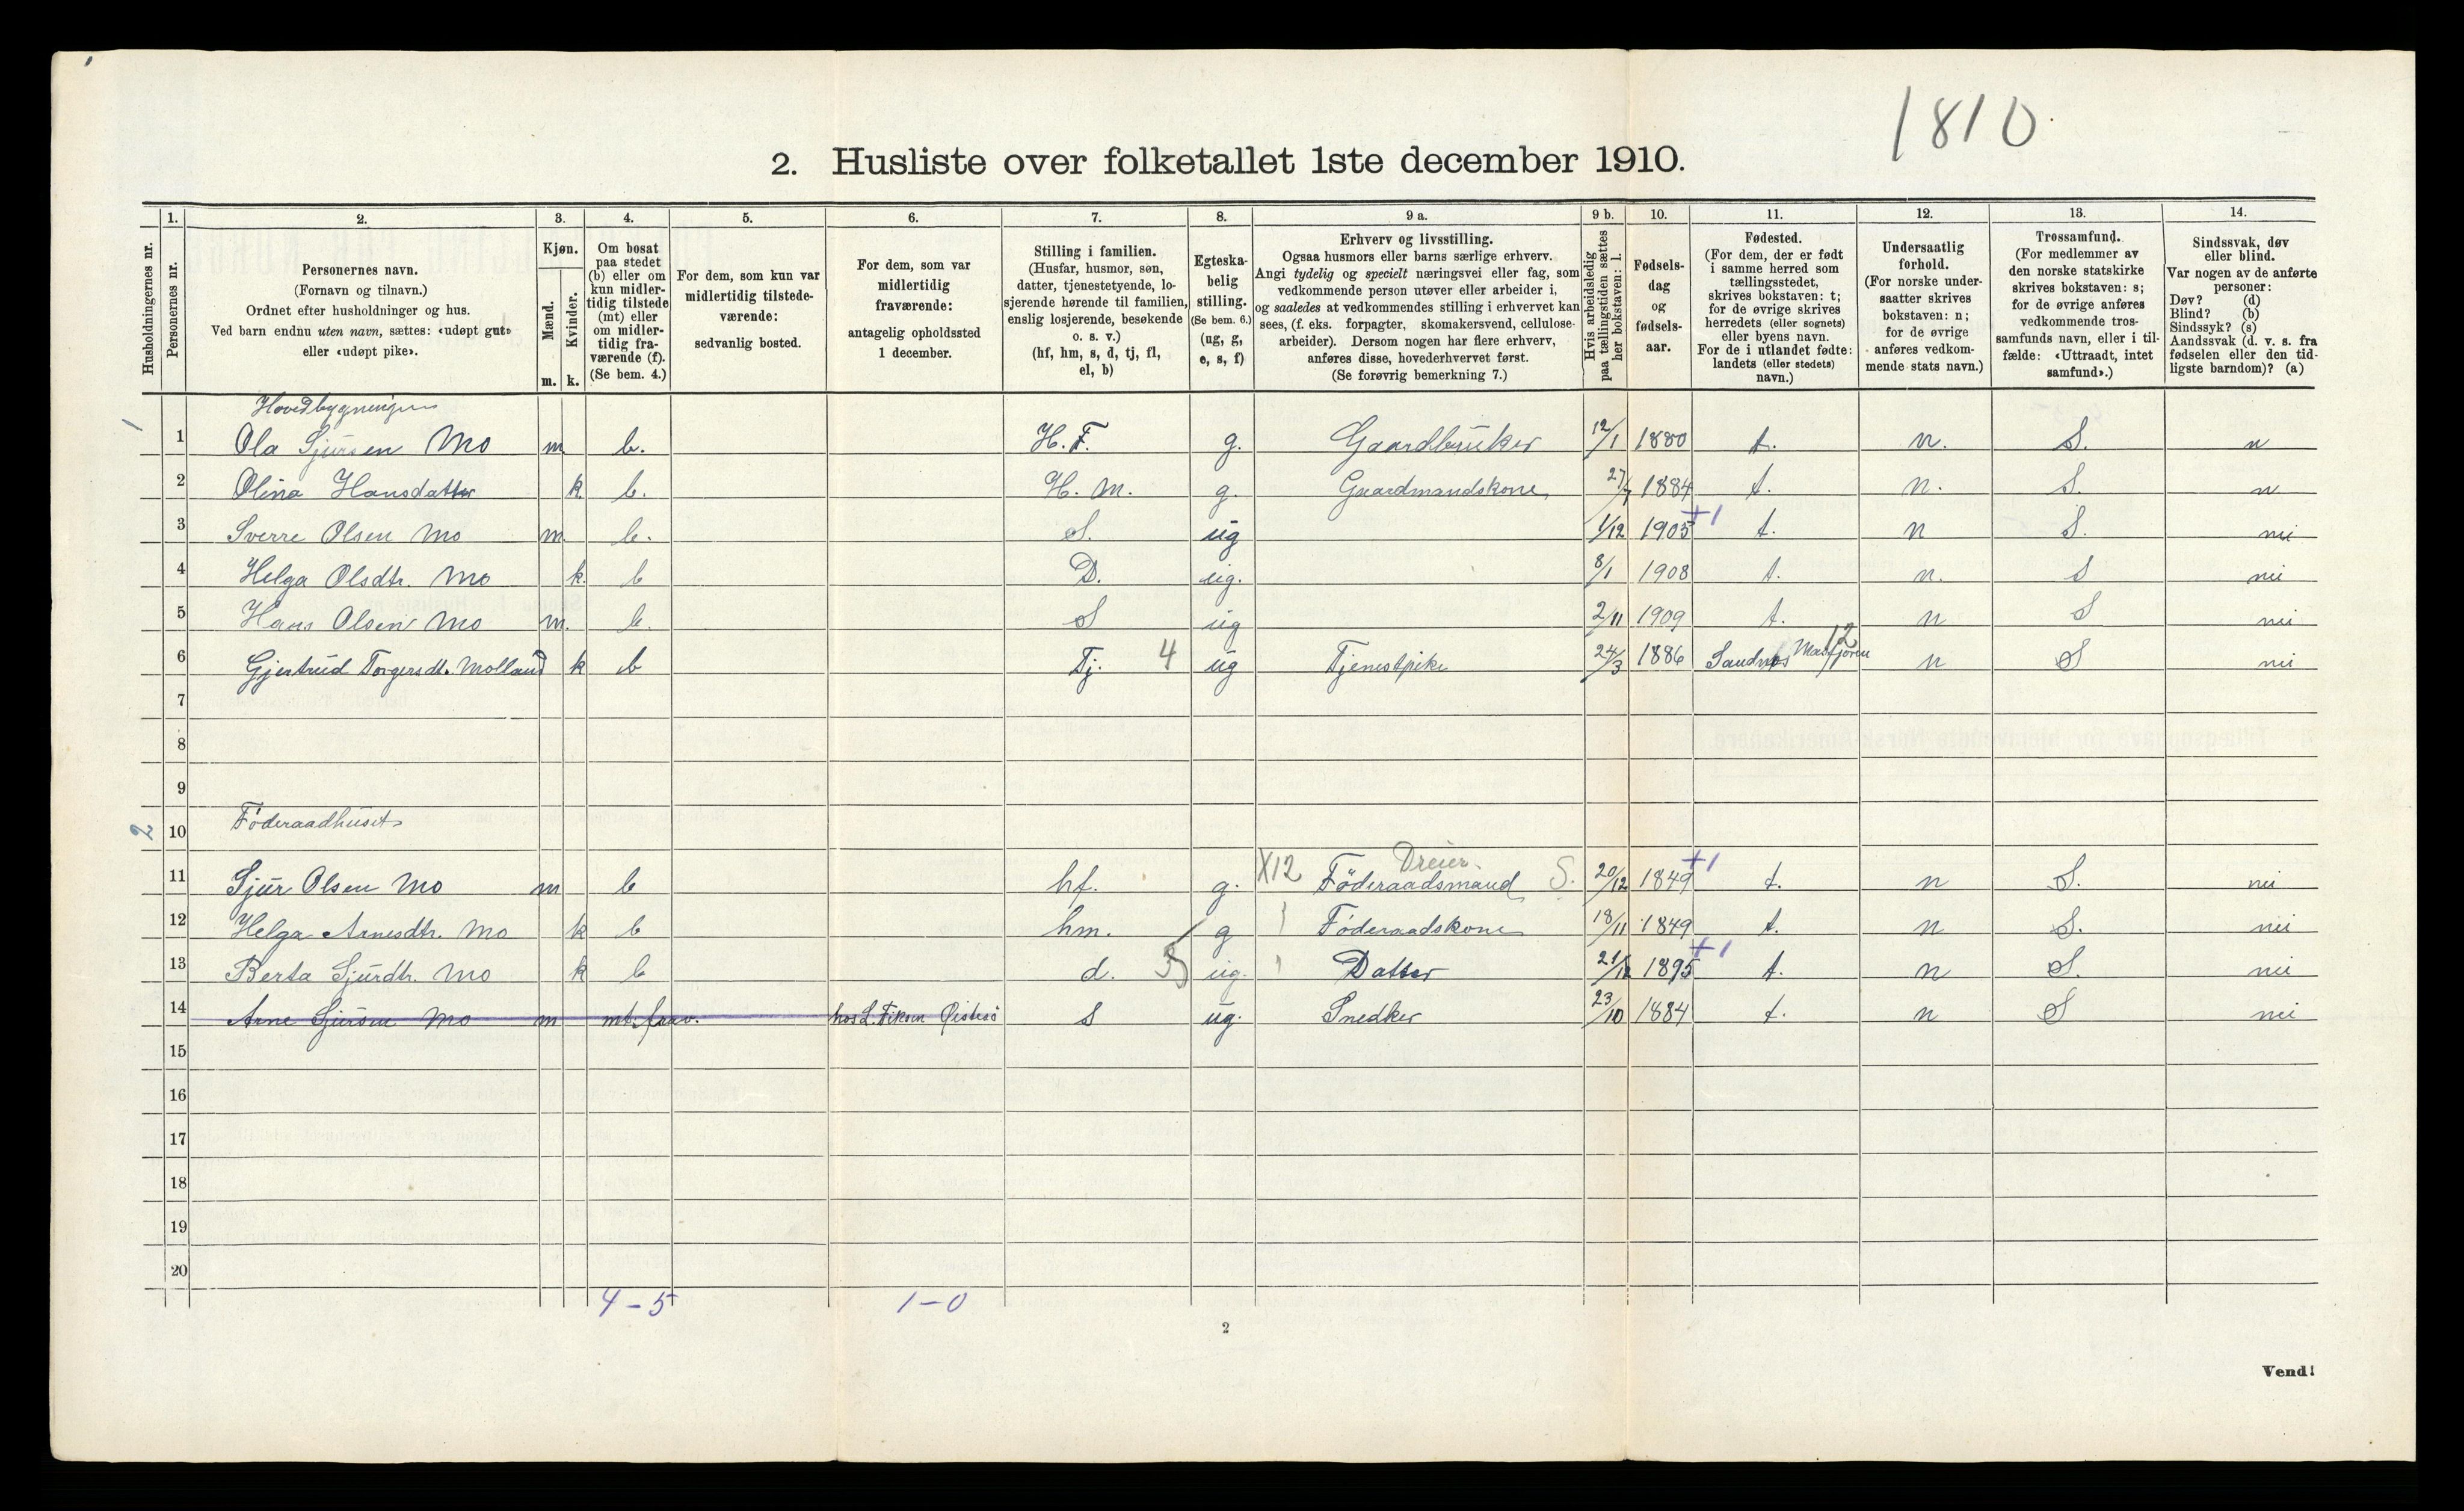 1810
2. Husliste over folketallet 1ste december 1910.
Husholdningernes nr.
1.
Personernes nr.
2.
Personernes navn.
(Fornavn og tilnavn.)
Ordnet efter husholdninger og hus.
Ved barn endnu uten navn, sættes: «udøpt gut»
eller «udøpt pike».
3.
Kjøn.
Mænd.
Kvinder.
m.
k.
4.
Om bosat
paa stedet
(b) eller om
kun midler-
tidig tilstede
(mt) eller
om midler-
tidig fra-
værende (f).
(Se bem. 4.)
5.
For dem, som kun var
midlertidig tilstede-
værende:
sedvanlig bosted.
6.
For dem, som var
midlertidig
fraværende:
antagelig opholdssted
1 december.
7.
Stilling i familien.
(Husfar, husmor, søn,
datter, tjenestetyende, lo-
sjerende hørende til familien,
enslig losjerende, besøkende
o. s. v.)
(hf, hm, s, d, tj, fl,
el, b)
8.
Egteska-
belig
stilling.
(Se bem. 6.)
(ug, g,
e, s, f)
9 a.
Erhverv og livsstilling.
Ogsaa husmors eller barns særlige erhverv.
Angi tydelig og specielt næringsvei eller fag, som
vedkommende person utøver eller arbeider i,
og saaledes at vedkommendes stilling i erhvervet kan
sees, (f. eks. forpagter, skomakersvend, cellulose-
arbeider). Dersom nogen har flere erhverv,
anføres disse, hovederhvervet først.
(Se forøvrig bemerkning 7.)
9 b.
Hvis arbeidsledig
paa tællingstiden sættes
her bokstaven: l.
10.
Fødsels-
dag
og
fødsels-
aar.
11.
Fødested.
(For dem, der er født
i samme herred som
tællingsstedet,
skrives bokstaven: t;
for de øvrige skrives
herredets (eller sognets)
eller byens navn.
For de i utlandet fødte:
landets (eller stedets)
navn.)
12.
Undersaatlig
forhold.
(For norske under-
saatter skrives
bokstaven: n;
for de øvrige
anføres vedkom-
mende stats navn.)
13.
Trossamfund.
(For medlemmer av
den norske statskirke
skrives bokstaven: s;
for de øvrige anføres
vedkommende tros-
samfunds navn, eller i til-
fælde: «Uttraadt, intet
samfund».)
14.
Sindssvak, døv
eller blind.
Var nogen av de anførte
personer:
Døv? (d)
Blind? (b)
Sindssyk? (s)
Aandssvak (d. v. s. fra
fødselen eller den tid-
ligste barndom)? (a)
Hovedbygningen
1 1 Ola Sjursen Mo m b. H. F. g. Gaardbruker 12/1 1880 t. n. S. n
2 Olina Hansdatter k. b. H. m. g. Gaardmandskone 27/7 1884 t. n. S. n
3 Sverre Olsen Mo m. b. S. ug 1/12 1905 +1 t. n S. nei
4 Helga Olsdtr. Mo k. b D. ug. 8/1 1908 t. n. S nei
5 Hans Olsen Mo m. b. S ug 2/11 1909 t. n S nei
6 Gjertrud Torgersdtr. Molland k b Tj. 4 ug Tjenestpike 24/3 1886 Sandnes Masfjoren 12 n S nei
7
8
9
2 10 Föderaadhuset
11 Sjur Olsen Mo m b hf. g. X12 Dreier. Föderaadsmand S. 20/12 1849 +1 t. n S. nei
12 Helga Arnesdtr. Mo k b hm. g Föderaadskone 18/11 1849 t. n S. nei
13 Berta Sjurdtr. Mo k b d. 5 ug. Datter 21/12 1895 +1 t. n S. nei
14 Arne Sjursen Mo m mt. frav. hos L. Fiksen Østesö S ug. Snedker 23/10 1884 t. n S nei
15
16
17
18
19
20
4 - 5 1 - 0
2
Vend!